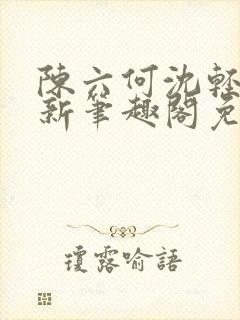 陳六何沈輕
新筆趣閣免
瓊露喻語